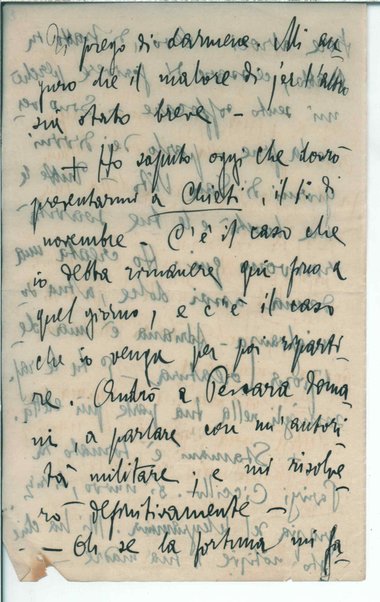 Vi prego di darmene. Mi au
guro che il malore di jer l'altro
sia stato breve –
+ Ho saputo oggi che dovrò
presentarmi a Chieti, il 1° di
novembre – C'è il caso che
io debba rimanere qui fino a
quel giorno, e c'è il caso
che io venga per poi riparti
re. Andrò a Pescara doma
ni, a parlare con un'autori
tà militare, e mi risolve
rò definitivamente –
– Oh se la fortuna mi fa-